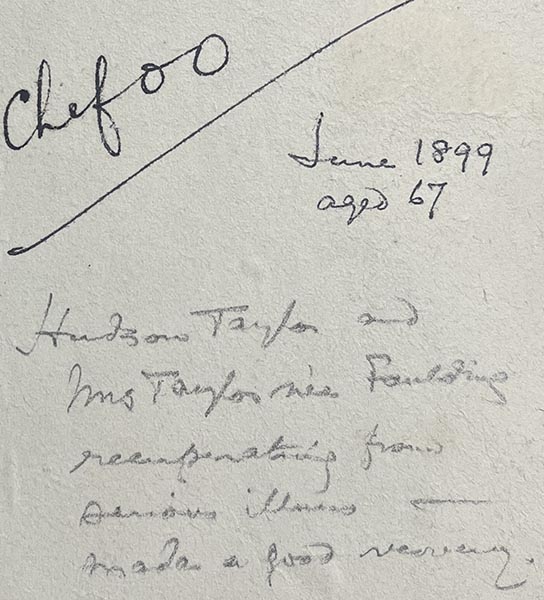 Chefoo
June 1899
aged 67
Hudson Taylor and
Mrs Taylor née Faulding
recuperating from
serious illness —
made a good recovery.